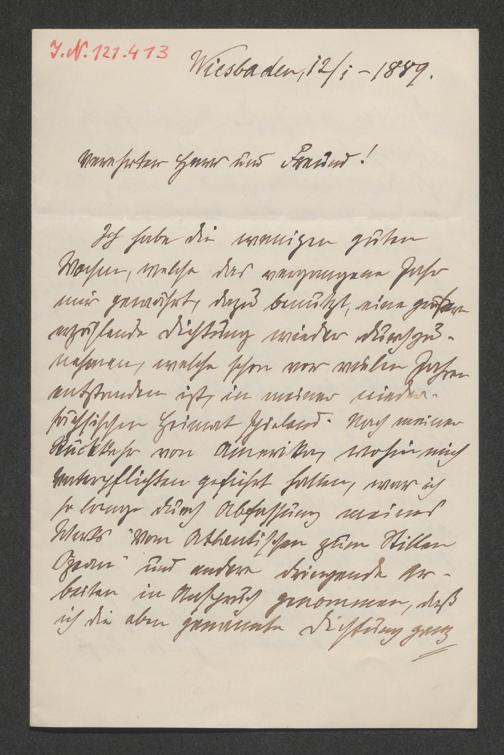 J.N. 121.413
Wiesbaden, 12/1 – 1889.
Verehrter Herr und Freund!
Ich habe die wenigen guten
Wochen, welche das vergangene Jahr
mir gewährt, dazu benutzt, eine größere
erzählende Dichtung wieder durchzu-
nehmen, welche schon vor vielen Jahren
entstanden ist, in meiner nieder-
sächsischen Heimat. Nach meiner
Rückkehr von Amerika, wohin mich
Vaterpflichten geführt hatten, war ich
so lange durch Abfassung meines
Werks "Vom Atlantischen zum Stillen
Ozean" und andere dringende Ar-
beiten in Anspruch genommen, daß
ich die oben genannte Dichtung ganz